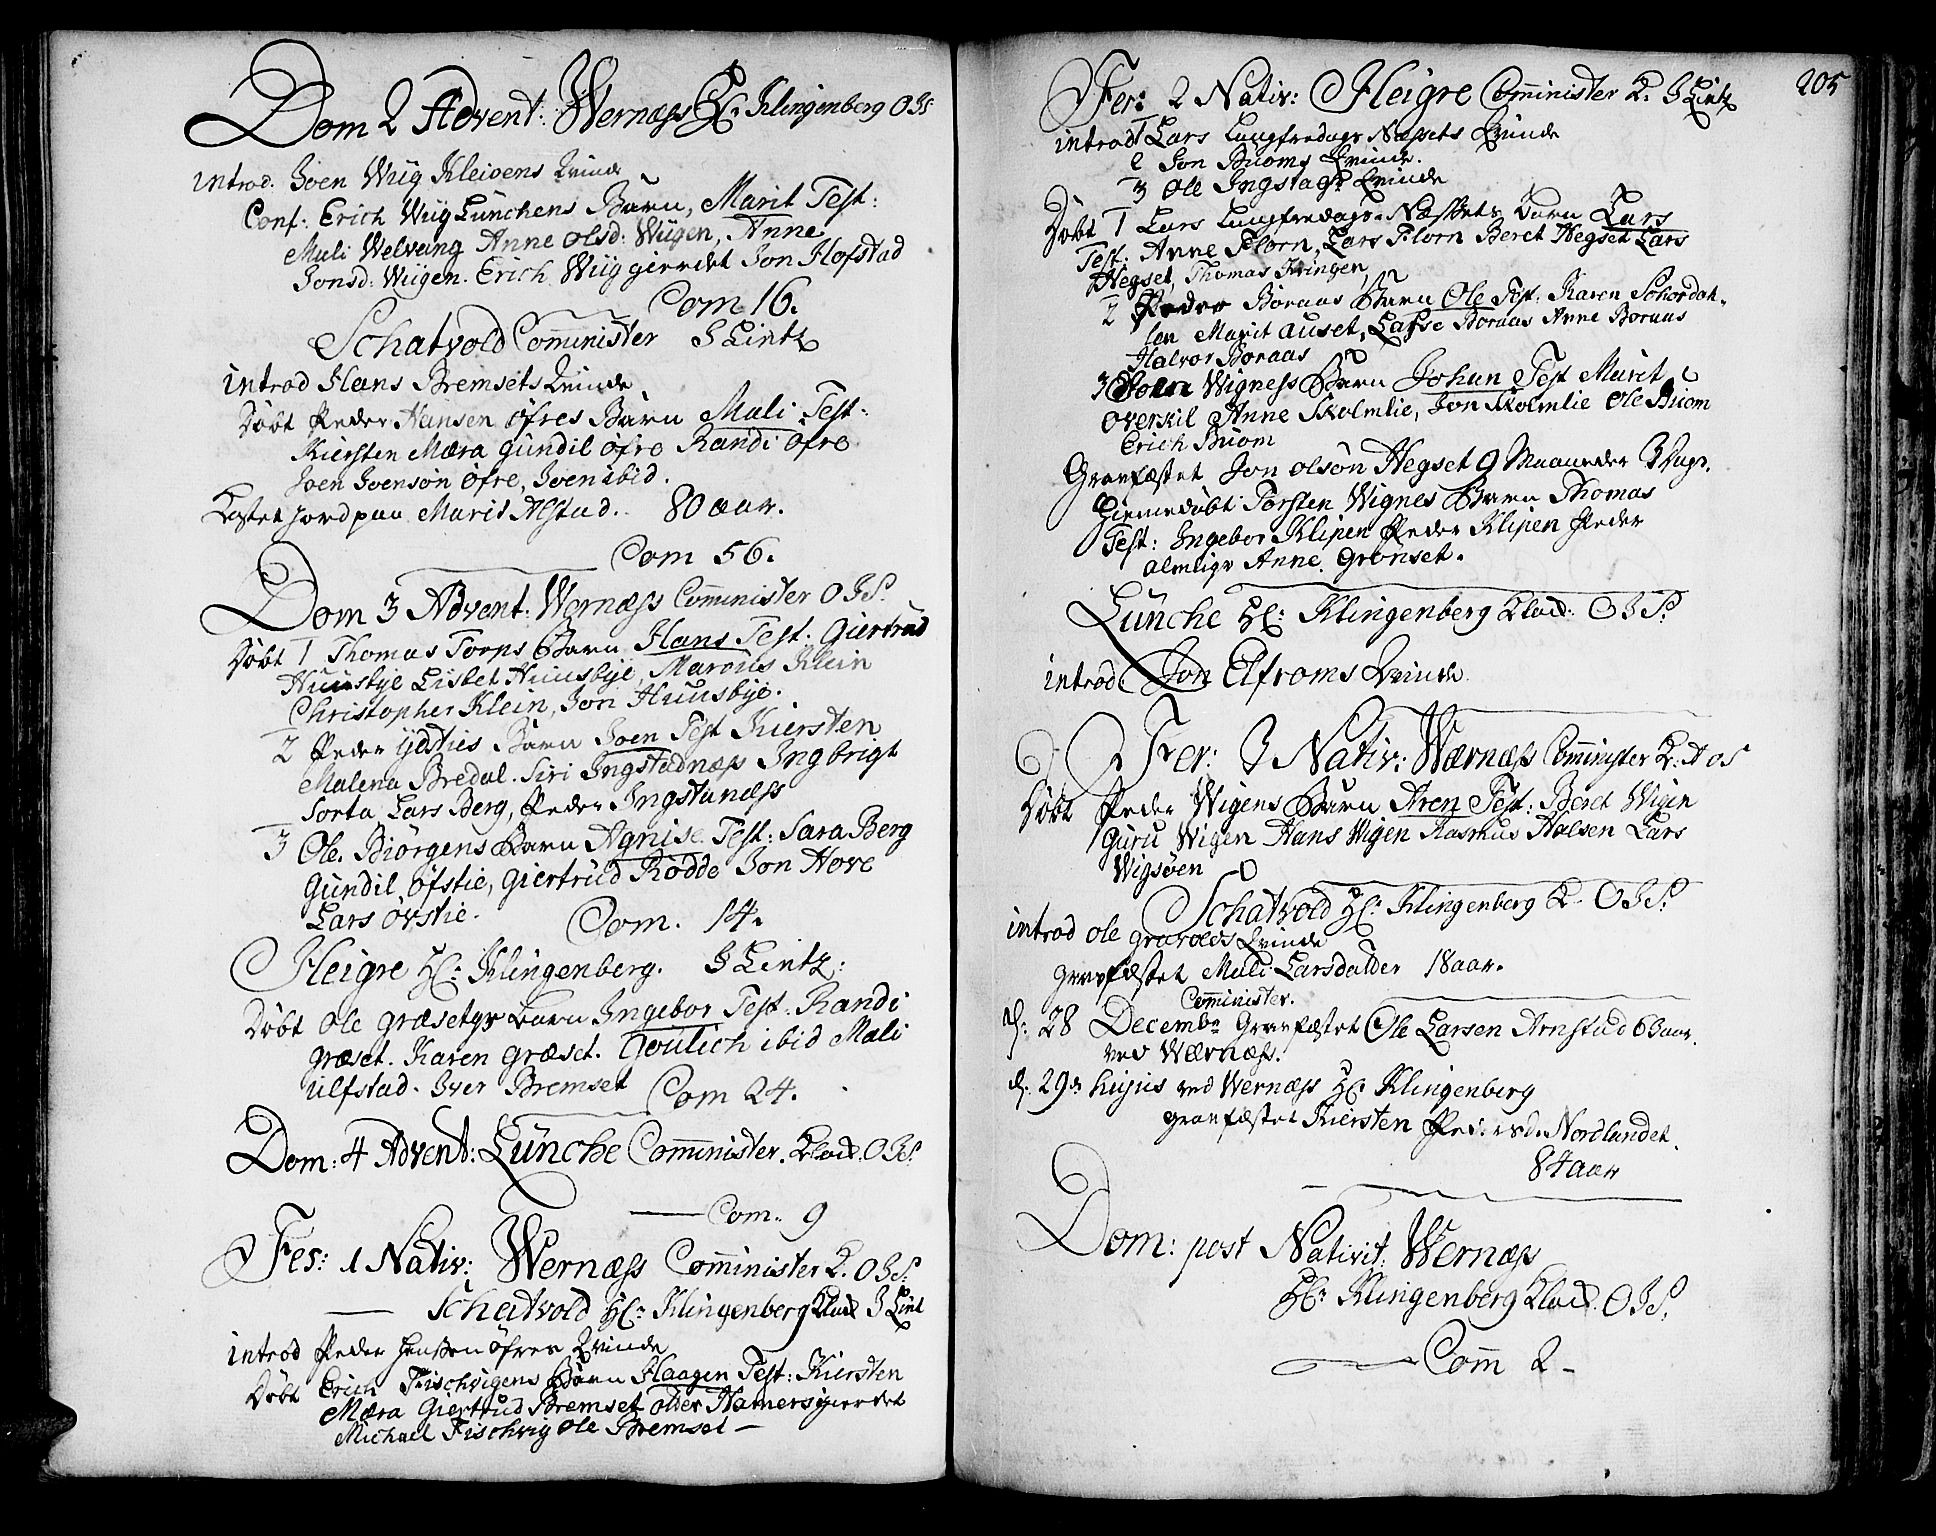 Dom 2 Advent: Wernæss Hr. Klingenberg O JS
introd. Joen Wiig Kleivens Qvinde
Conf: Erich Wiig Lünchens Barn, Marit Test:
Mali Welvang Anne Olsd: Wiigen, Anne
Jonsd: Wiigen. Erich Wiig gierdet Jon Hofstad
Com 16.
Schatvold Comminister J Lintz
introd Hans Bremsets Qvinde
Døbt Peder Hansen Øfres Barn Mali Test:
Kiersten Mæra Gundil Øfre Randi Øfre
Joen Joensøn Øfre, Joen ibid.
Kastet jord paa Marit Alstad. 80 aar.
Com 56.
Dom 3 Advent: Wernæss Comminister O JS.
Døbt 1 Thomas Torps Barn Hans Test. Giertrud
Huusbye Lisbet Huusbye, Marcus Klein
Christopher Klein, Jon Huusbye.
2 Peder Ydsties Barn Joen Test Kiersten
Malena Bredal. Siri Ingstadnæss Ingbrigt
Sorta, Lars Berg, Peder Ingstanæss
3 Ole Biørgens Barn Agnise Test: Sara Berg
Gundil Øfstie, Giertrud Rodde Jon Hove
Lars Øvstie.
Com. 14.
Heigre Hr: Klingenberg. J Lintz:
Døbt Ole Græsetgs Barn Ingebor Test. Randi
Græset. Karen Græset. ibid Mali
Ulfstad. Iver Bremset
Com 24.
Dom: 4 Advent: Lünche Comminister. Klock. O JS.
Com. 9
Fer: 1 Nativ: Wernæss Comminister K. O JS:
Schatvold Hr: Klingenberg Klock J Lint
introd Peder Hansen Øfres Qvinde
Døbt Erich Fischvigens Barn Haagen Test: Kiersten
Mæra Giertrud Bremset Hamersgierdet
Michael Fischvig Ole Bremset
205
Fer: 2 Nativ: Heigre Comminister K. J Lintz
introd 1 Lars Langfredags Næssets Qvinde
2 Jon Buoms Qvinde.
3 Ole Ingstags Qvinde
Døbt 1 Lars Langfredags-Næssets Barn Lars
Test: Anne Florn, Lars Florn Beret Hegset Lars
Hegset, Thomas Kringen,
2 Peder Boraas Barn Ole Test: Karen Schordah-
len Marit Auset, Lasse Boraas Anne Boraas
Halvor Boraas
3 Joen Wigness Barn Johan Test Marit
Overkil Anne Skolmlie, Jon Skolmlie Ole Buom
Erich Buom
Gravfæstet Jon Olsøn Hegset 9 Maaneder 3 Uger.
Hiemedøbt Torsten Wignes Barn Thomas
Test: Ingebor Klipen Peder Klipen Peder
Almlige Anne Grønset.
Lünche Hr: Klingenberg Klock: O JS.
introd Jon Elfroms Qvinde
Fer: 3 Nativ: Wærnæss Comminister K: O S
Døbt Peder Wigens Barn Aren Test: Beret Wigen
Guru Wigen Hans Wigen Rasmus Halsen Lars
Wigsøen
Schatvold Hr: Klingenberg K. O JS.
introd Ole Gravolds Qvinde
Gravfæstet Mali Larsdatter 18 aar.
Comminister.
d: 28 Decembr Gravfæstet Ole Larsen Arnstad 63 aar.
ved Wærnæss.
d. 29de hujus ved Wernæss Hr Klingenberg
gravfæstet Kiersten Pedersd. Nordlandet.
84 aar
Dom: post Nativit: Wernæss
Hr. Klingenberg Klock. O JS.
Comm 2